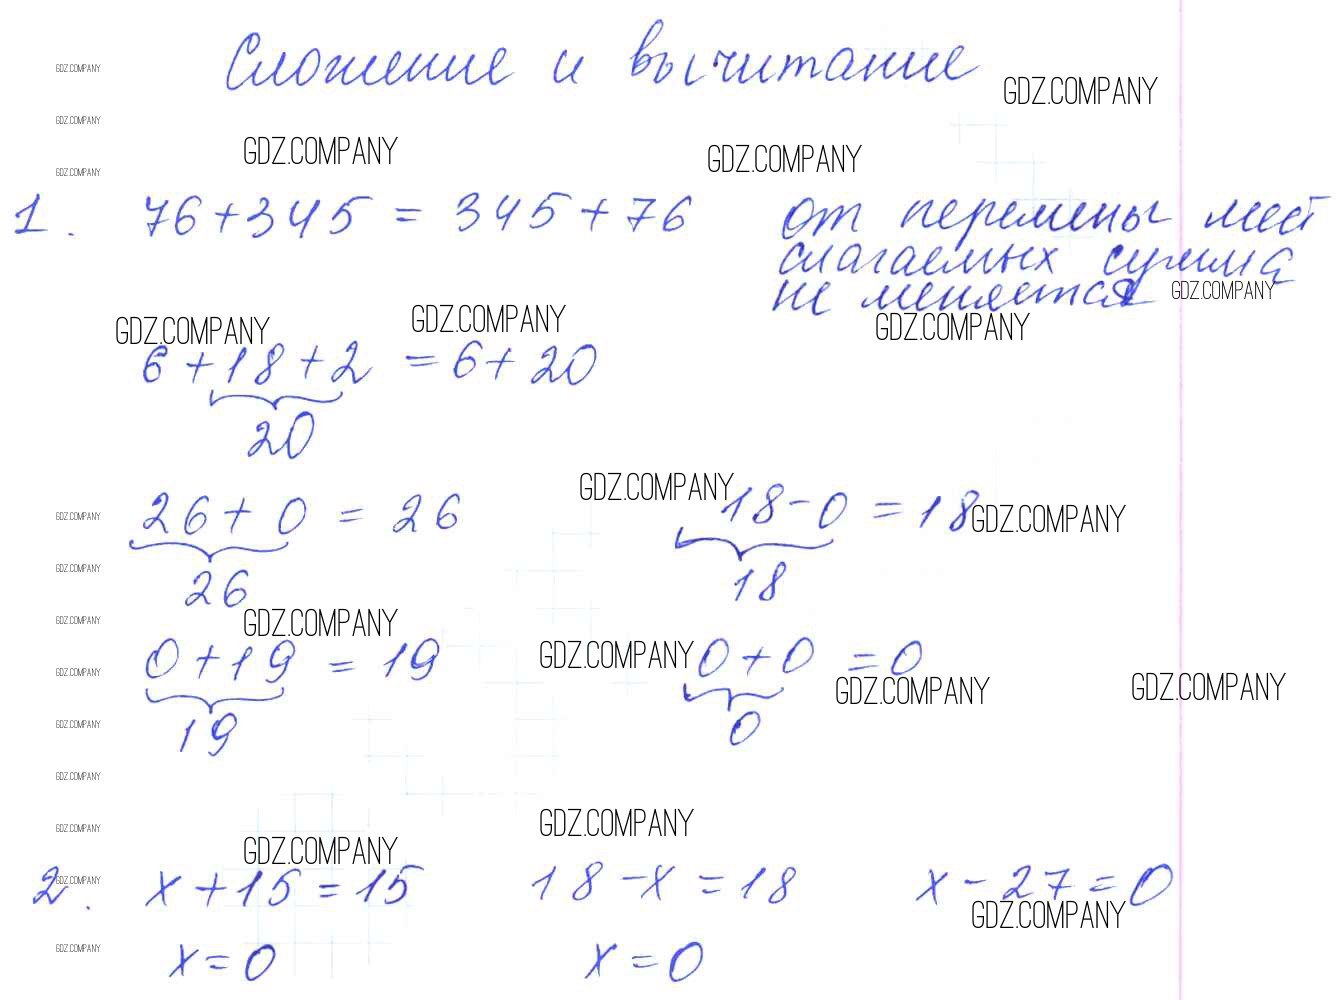 Сложение и вычитание
GDZ.COMPANY
GDZ.COMPANY
GDZ.COMPANY
GDZ.COMPANY
GDZ.COMPANY
GDZ.COMPANY
1. 76+345 = 345+76 от перемены мест
слагаемых сумма
не меняется GDZ.COMPANY
GDZ.COMPANY
GDZ.COMPANY
GDZ.COMPANY
6+18+2 = 6+20
20
GDZ.COMPANY
GDZ.COMPANY 26+0 = 26 18-0 = 18 GDZ.COMPANY
GDZ.COMPANY
26 18
GDZ.COMPANY
GDZ.COMPANY
0+19 = 19 GDZ.COMPANY 0+0 = 0
GDZ.COMPANY
GDZ.COMPANY
GDZ.COMPANY
GDZ.COMPANY
19 0
GDZ.COMPANY
GDZ.COMPANY
GDZ.COMPANY
GDZ.COMPANY
GDZ.COMPANY
2. x+15=15 18-x=18 x-27=0
GDZ.COMPANY
GDZ.COMPANY
x=0 x=0